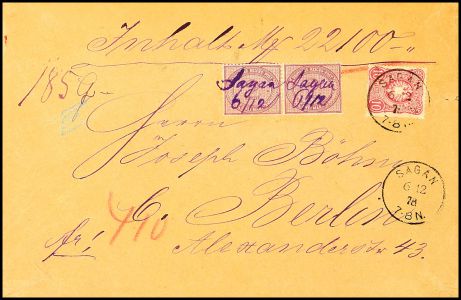 Inhalt Mk 22100 —"
185 g
Sagan 6/12
Sagan 6/12
10
SAGAN
6 12
7-8N.
Herrn
Joseph Böhm
SAGAN
6 12
78
7-8N.
C. Berlin
fr!
Alexanderstr 43.